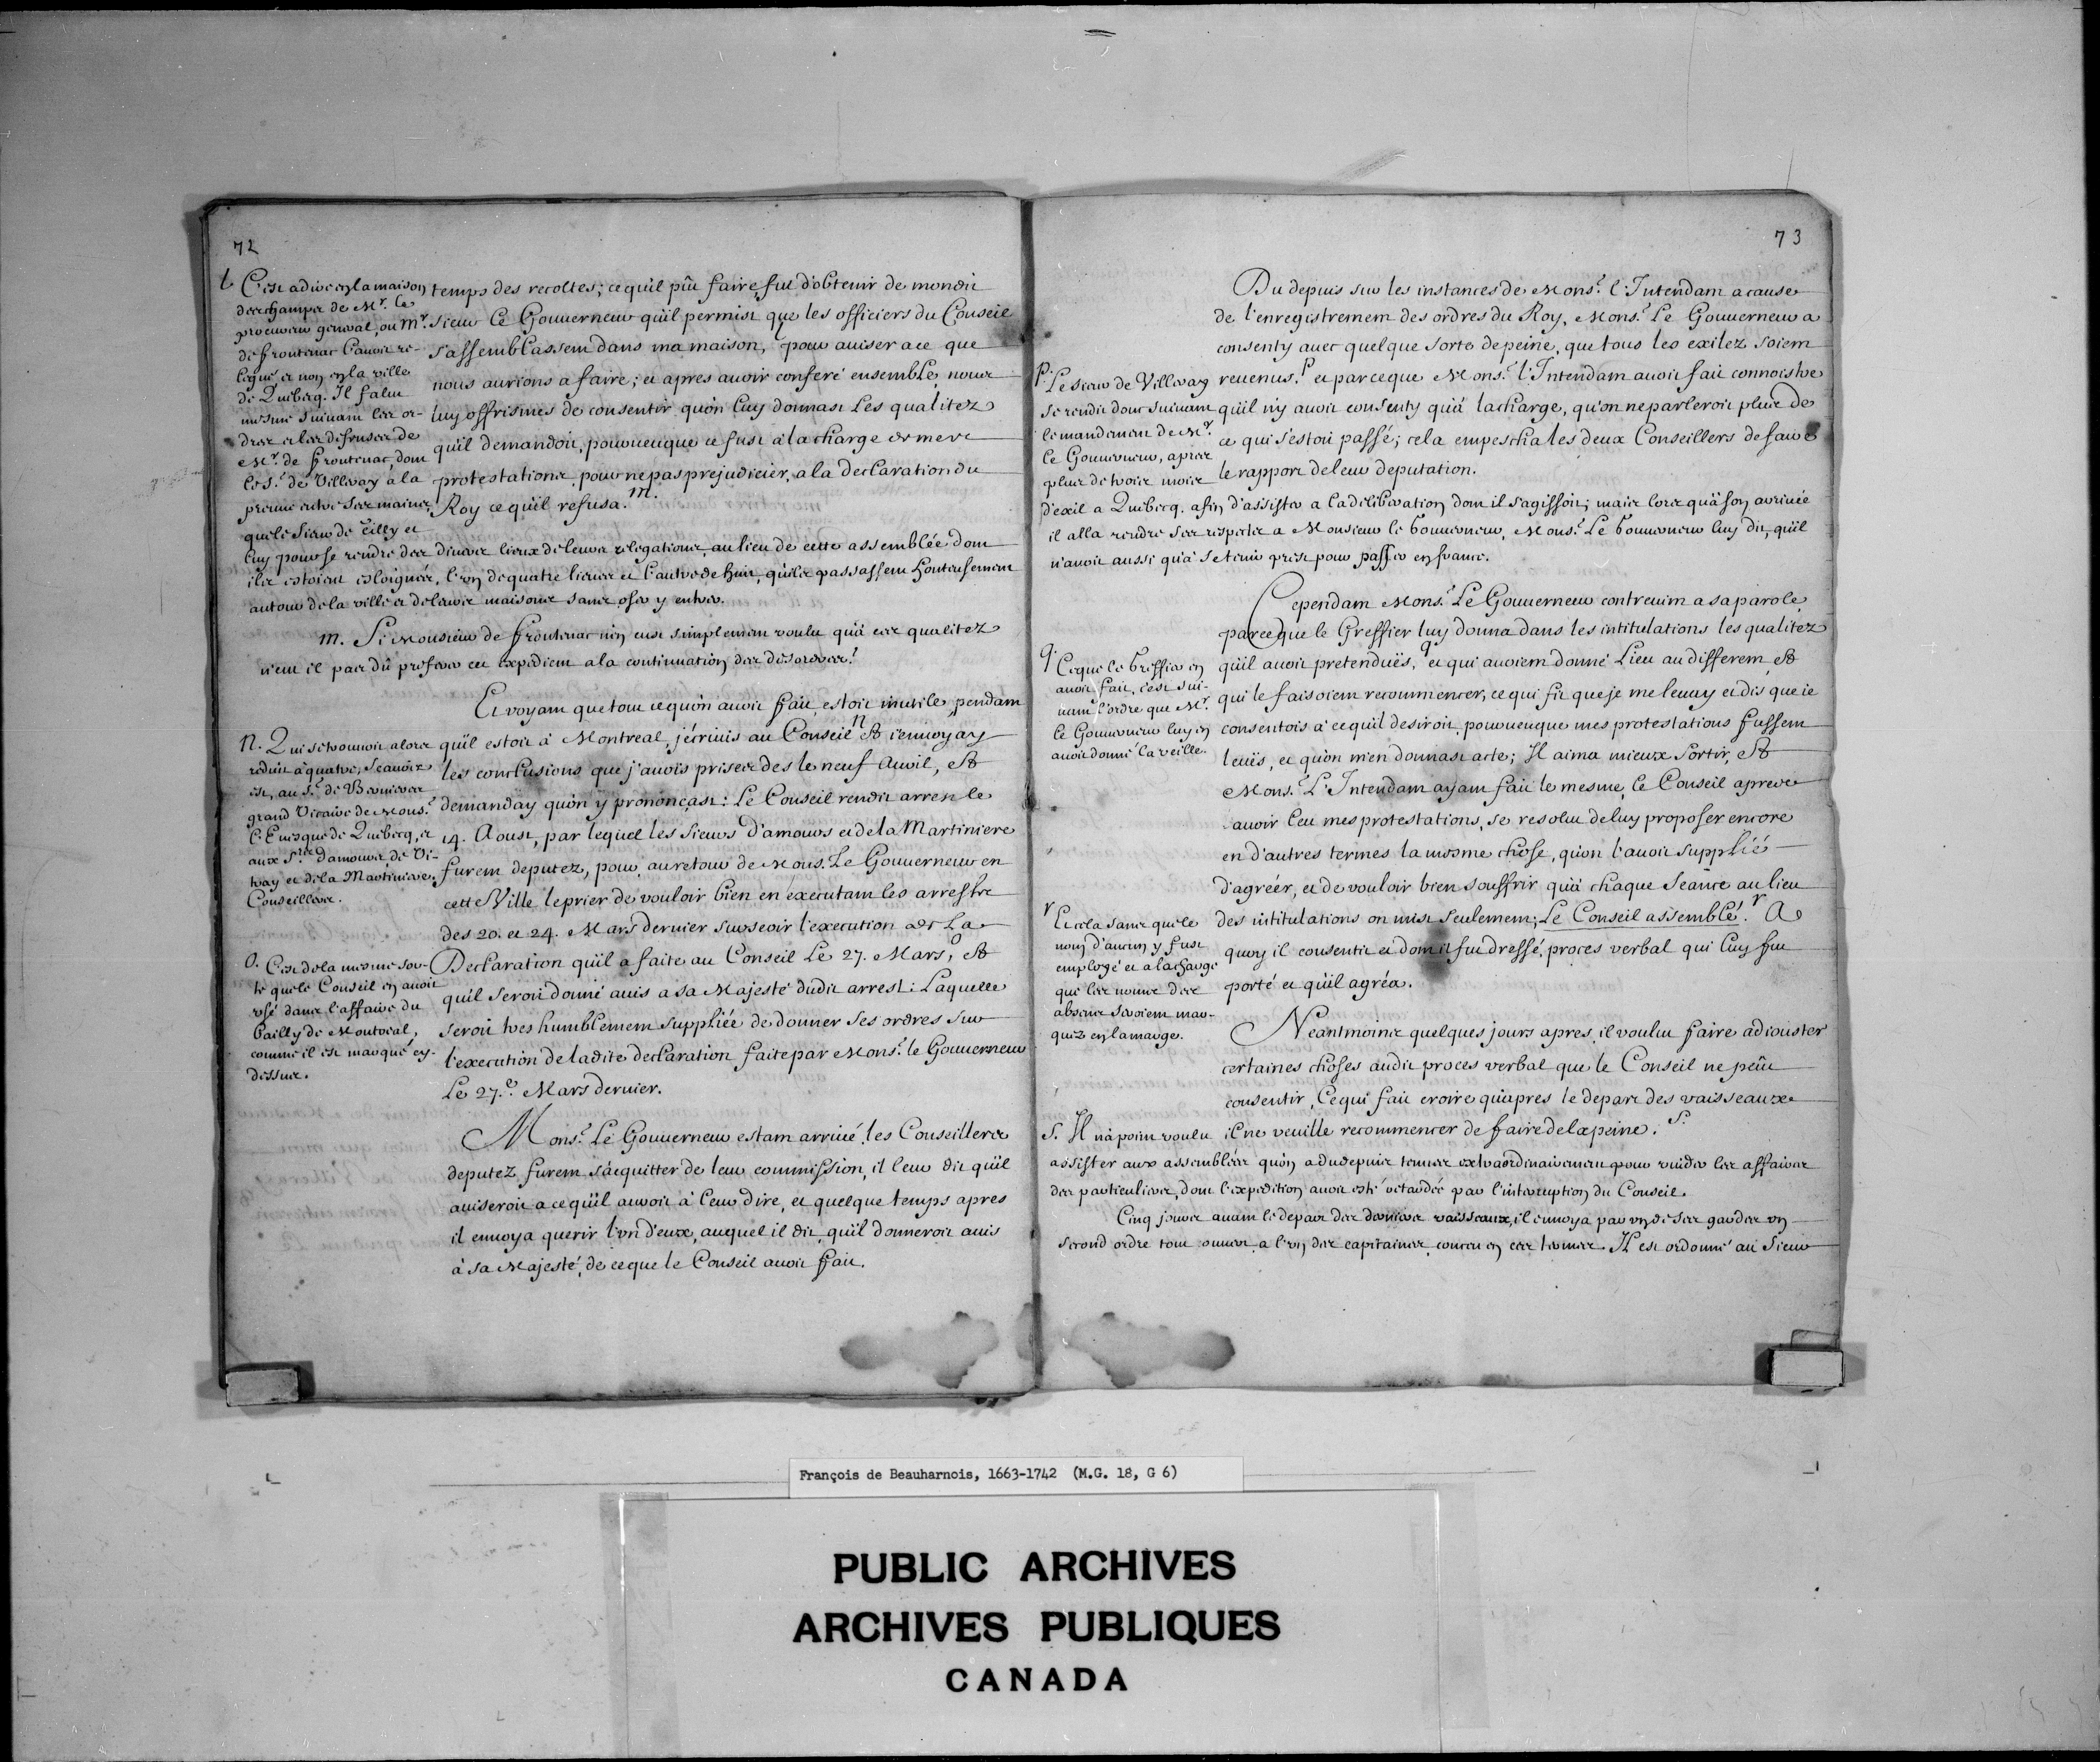 72
temps des recoltes; ce qu'il pût faire, fut d'obtenir de mondit
sieur Le Gouuerneur qu'il permist que les officiers du Conseil
s'assemblassent dans ma maison, pour auiser a ce que
nous aurions a faire; et apres auoir conferé ensemble, nous
luy offrismes de consentir qu'on luy donnast Les qualitez
qu'il demandoit, pourueuque ce fust à la charge de mes
protestations, pour ne pas prejudicier, a la declaration du
Roy ce qu'il refusa. m.
l C'est a dire en la maison
des champs de Mr. le
procureur general, ou Mr.
de frontenac l'auoit re-
legué et non en la ville
de Quebecq. Il falut
mesme suiuant les or-
dres et les defenses de
Mr. de frontenac, dont
le Sr. de Villeray a la
preuue entre ses mains,
que le sieur de Tilly et
luy pour se rendre des diuers lieux de leurs relegations, au lieu de cette assemblée dont
ils estoient esloignés, l'un de quatre lieues et l'autre de huit, qu'ils passassent honteusement
autour de la ville et de leurs maisons sans oser y entrer.
m. Si Monsieur de frontenac n'en eust simplement voulu qu'a ces qualitez
n'eut il pas dû preferer cet expedient a la continuation des desordres!
Et voyant que tout ce qu'on auoit fait, estoit inutile, pendant
qu'il estoit à Montreal, j'écriuis au Conseil n & j'enuoyay
les conclusions que j'auois prises des le neuf Auril, &
demanday qu'on y prononçast: Le Conseil rendit arrest le
14. Aoust, par lequel les sieurs d'amours et de la Martiniere
furent deputez, pour, au retour de Mons. Le Gouuerneur en
cette Ville le prier de vouloir bien en executant les arrests
des 20. et 24. Mars dernier surseoir l'execution de La
Declaration qu'il a faite au Conseil Le 27. Mars, o &
qu'il seroit donné auis a sa Majesté dudit arrest: Laquelle
seroit tres humblement suppliée de donner ses ordres sur
l'execution de ladite declaration faite par Mons.r le Gouuerneur
Le 27.e Mars dernier.
n. Qui se trouuoit alors
reduit à quatre, scauoir
est, au Sr. de Bernieres
grand Vicaire de Mons.r
l'Euesque de Quebecq, et
aux Srs. damours, de Vi-
tray et de la Martiniere,
Conseillers.
o. C'est de la mesme sor-
te que le Conseil en auoit
usé dans l'affaire du
bailly de Montreal,
comme il est marqué cy-
dessus.
Mons.r Le Gouuerneur estant arriué, les Conseillers
deputez furent s'acquitter de leur commission, il leur dit qu'il
auiseroit a ce qu'il auroit à leur dire, et quelque temps apres
il enuoya querir l'un d'eux, auquel il dit, qu'il donneroit auis
à sa Majesté, de ce que le Conseil auoit fait.
73
Du depuis sur les instances de Mons.r l'Intendant a cause
de l'enregistrement des ordres du Roy, Mons.r Le Gouuerneur a
consenty auec quelque sorte de peine, que tous les exilez soient
reuenus. p et parce que Mons.r l'Intendant auoit fait connoistre
qu'il n'y auoit consenty qu'a la charge, qu'on ne parleroit plus de
ce qui s'estoit passé; cela empescha les deux Conseillers de faire
le rapport de leur deputation.
p. Le sieur de Villeray
se rendit donc suiuant
le mandement de Mr.
le Gouuerneur, apres
plus de trois mois
d'exil a Quebecq. afin d'assister a la deliberation dont il s'agissoit; mais lors qu'a son arriuée
il alla rendre ses respects a Monsieur le Gouuerneur, Mons.r Le Gouuerneur luy dit, qu'il
n'auoit aussi qu'a se tenir prest pour passer en france.
Cependant Mons.r Le Gouuerneur contreuint a sa parole,
parce que le Greffier luy donna dans les intitulations les qualitez
qu'il auoit pretenduës, q et qui auoient donné Lieu au different, &
qui le faisoient recommencer, ce qui fit que je me leuay et dis que ie
consentois à ce qu'il desiroit, pourueuque mes protestations fussent
leuës, et qu'on m'en donnast acte; Il aima mieux sortir, &
Mons.r L'Intendant ayant fait le mesme, Le Conseil apres
auoir leu mes protestations, se resolut de luy proposer encore
en d'autres termes la mesme chose, qu'on l'auoit supplié
d'agréer, et de vouloir bien souffrir qu'à chaque seance au lieu
des intitulations on mist seulement; Le Conseil assemblé. r A
quoy il consentit et dont il fut dressé, proces verbal qui luy fut
porté et qu'il agréa.
q. Ce que le Greffier en
auoit fait, c'est sui-
uant l'ordre que Mr.
le Gouuerneur luy en
auoit donné la veille.
r Et cela sans que le
nom d'aucun y fust
employé et a la charge
que les noms des
absens seroient mar-
quez en la marge.
Neantmoins quelques jours apres, il voulut faire adiouster
certaines choses audit proces verbal que le Conseil ne peût
consentir, Ce qui fait croire qu'apres le depart des vaisseaux
il ne veuille recommencer de faire de la peine. s.
s. Il n'a point voulu
assister aux assemblées qu'on a du depuis tenues extraordinairement pour vuider les affaires
des particuliers, dont l'expedition auoit esté retardée par l'interruption du Conseil.
Cinq jours auant le depart des derniers vaisseaux, il enuoya par un de ses gardes un
second ordre tout ouuert a l'un des capitaines conceu en ces termes. Il est ordonné au sieur
François de Beauharnois, 1663-1742 (M.G. 18, G 6)
PUBLIC ARCHIVES
ARCHIVES PUBLIQUES
CANADA